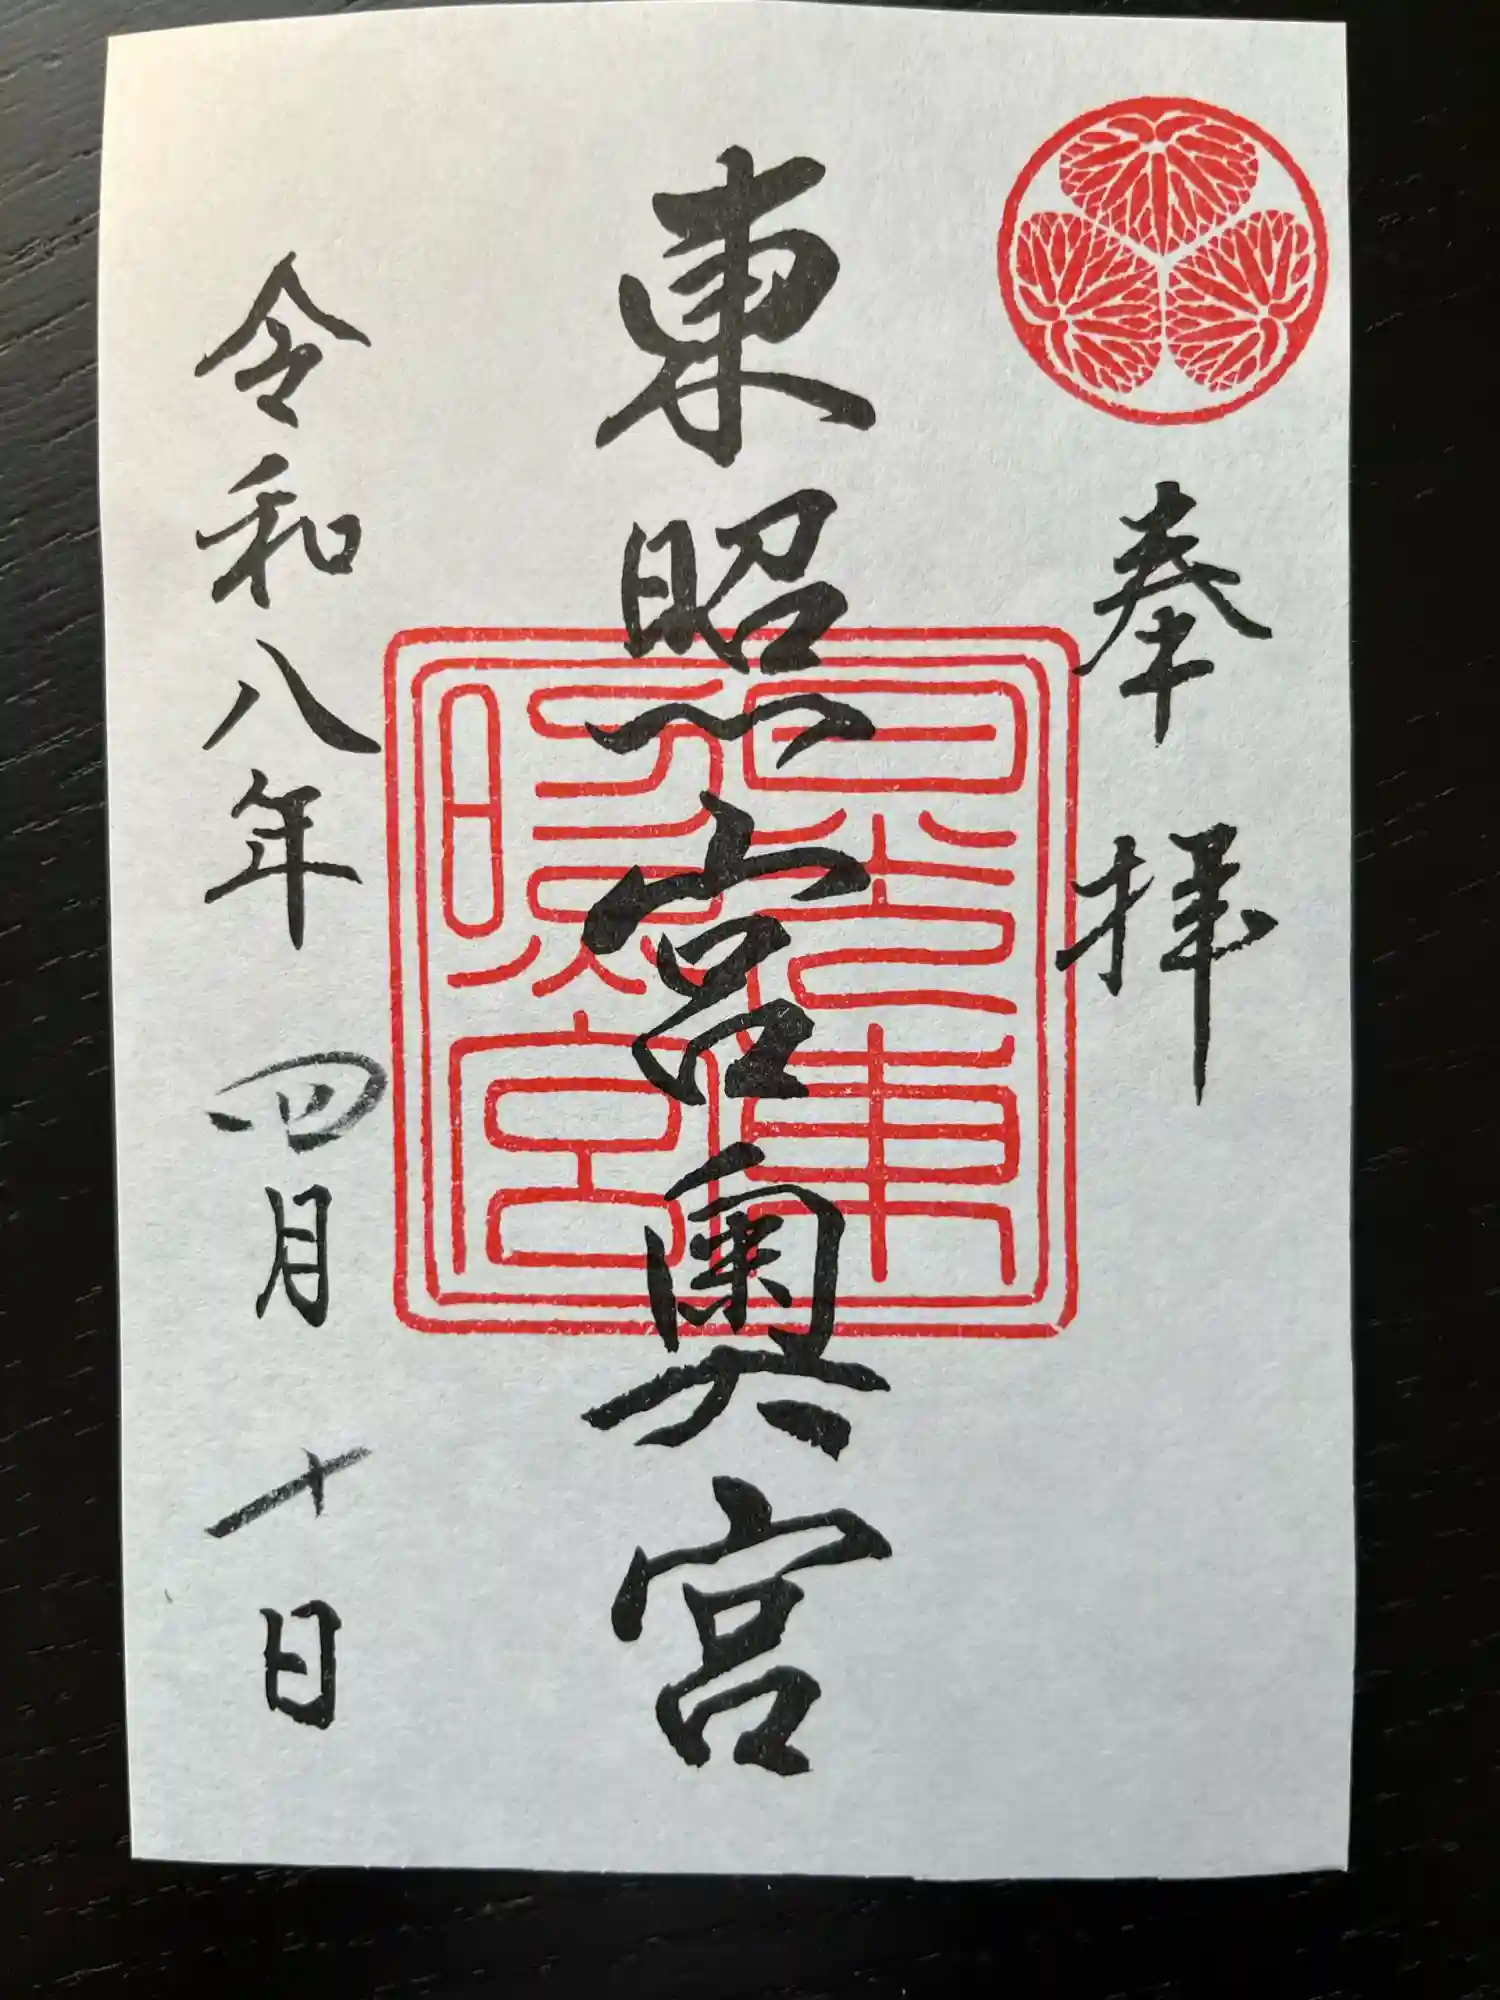 奉拝
東照宮奥宮
日光東照宮
令和八年四月十日